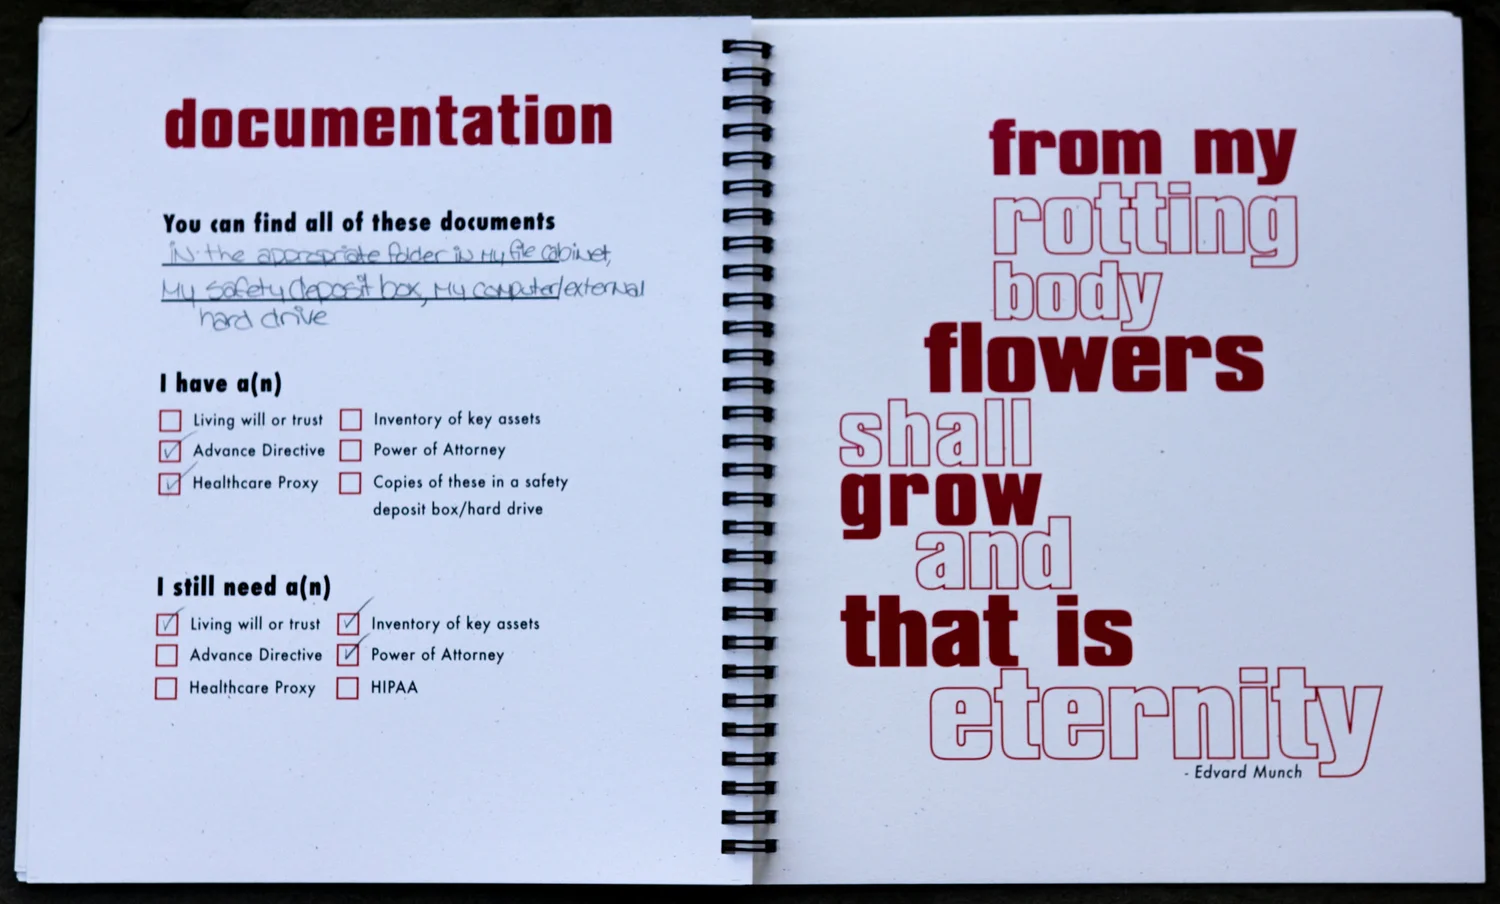 documentation
You can find all of these documents
in the appropriate folder in my file cabinet,
my safety deposit box, my computer/external
hard drive
I have a(n)
Living will or trust
Advance Directive
Healthcare Proxy
Inventory of key assets
Power of Attorney
Copies of these in a safety
deposit box/hard drive
I still need a(n)
Living will or trust
Advance Directive
Healthcare Proxy
Inventory of key assets
Power of Attorney
HIPAA
from my
rotting
body
flowers
shall
grow
and
that is
eternity
- Edvard Munch